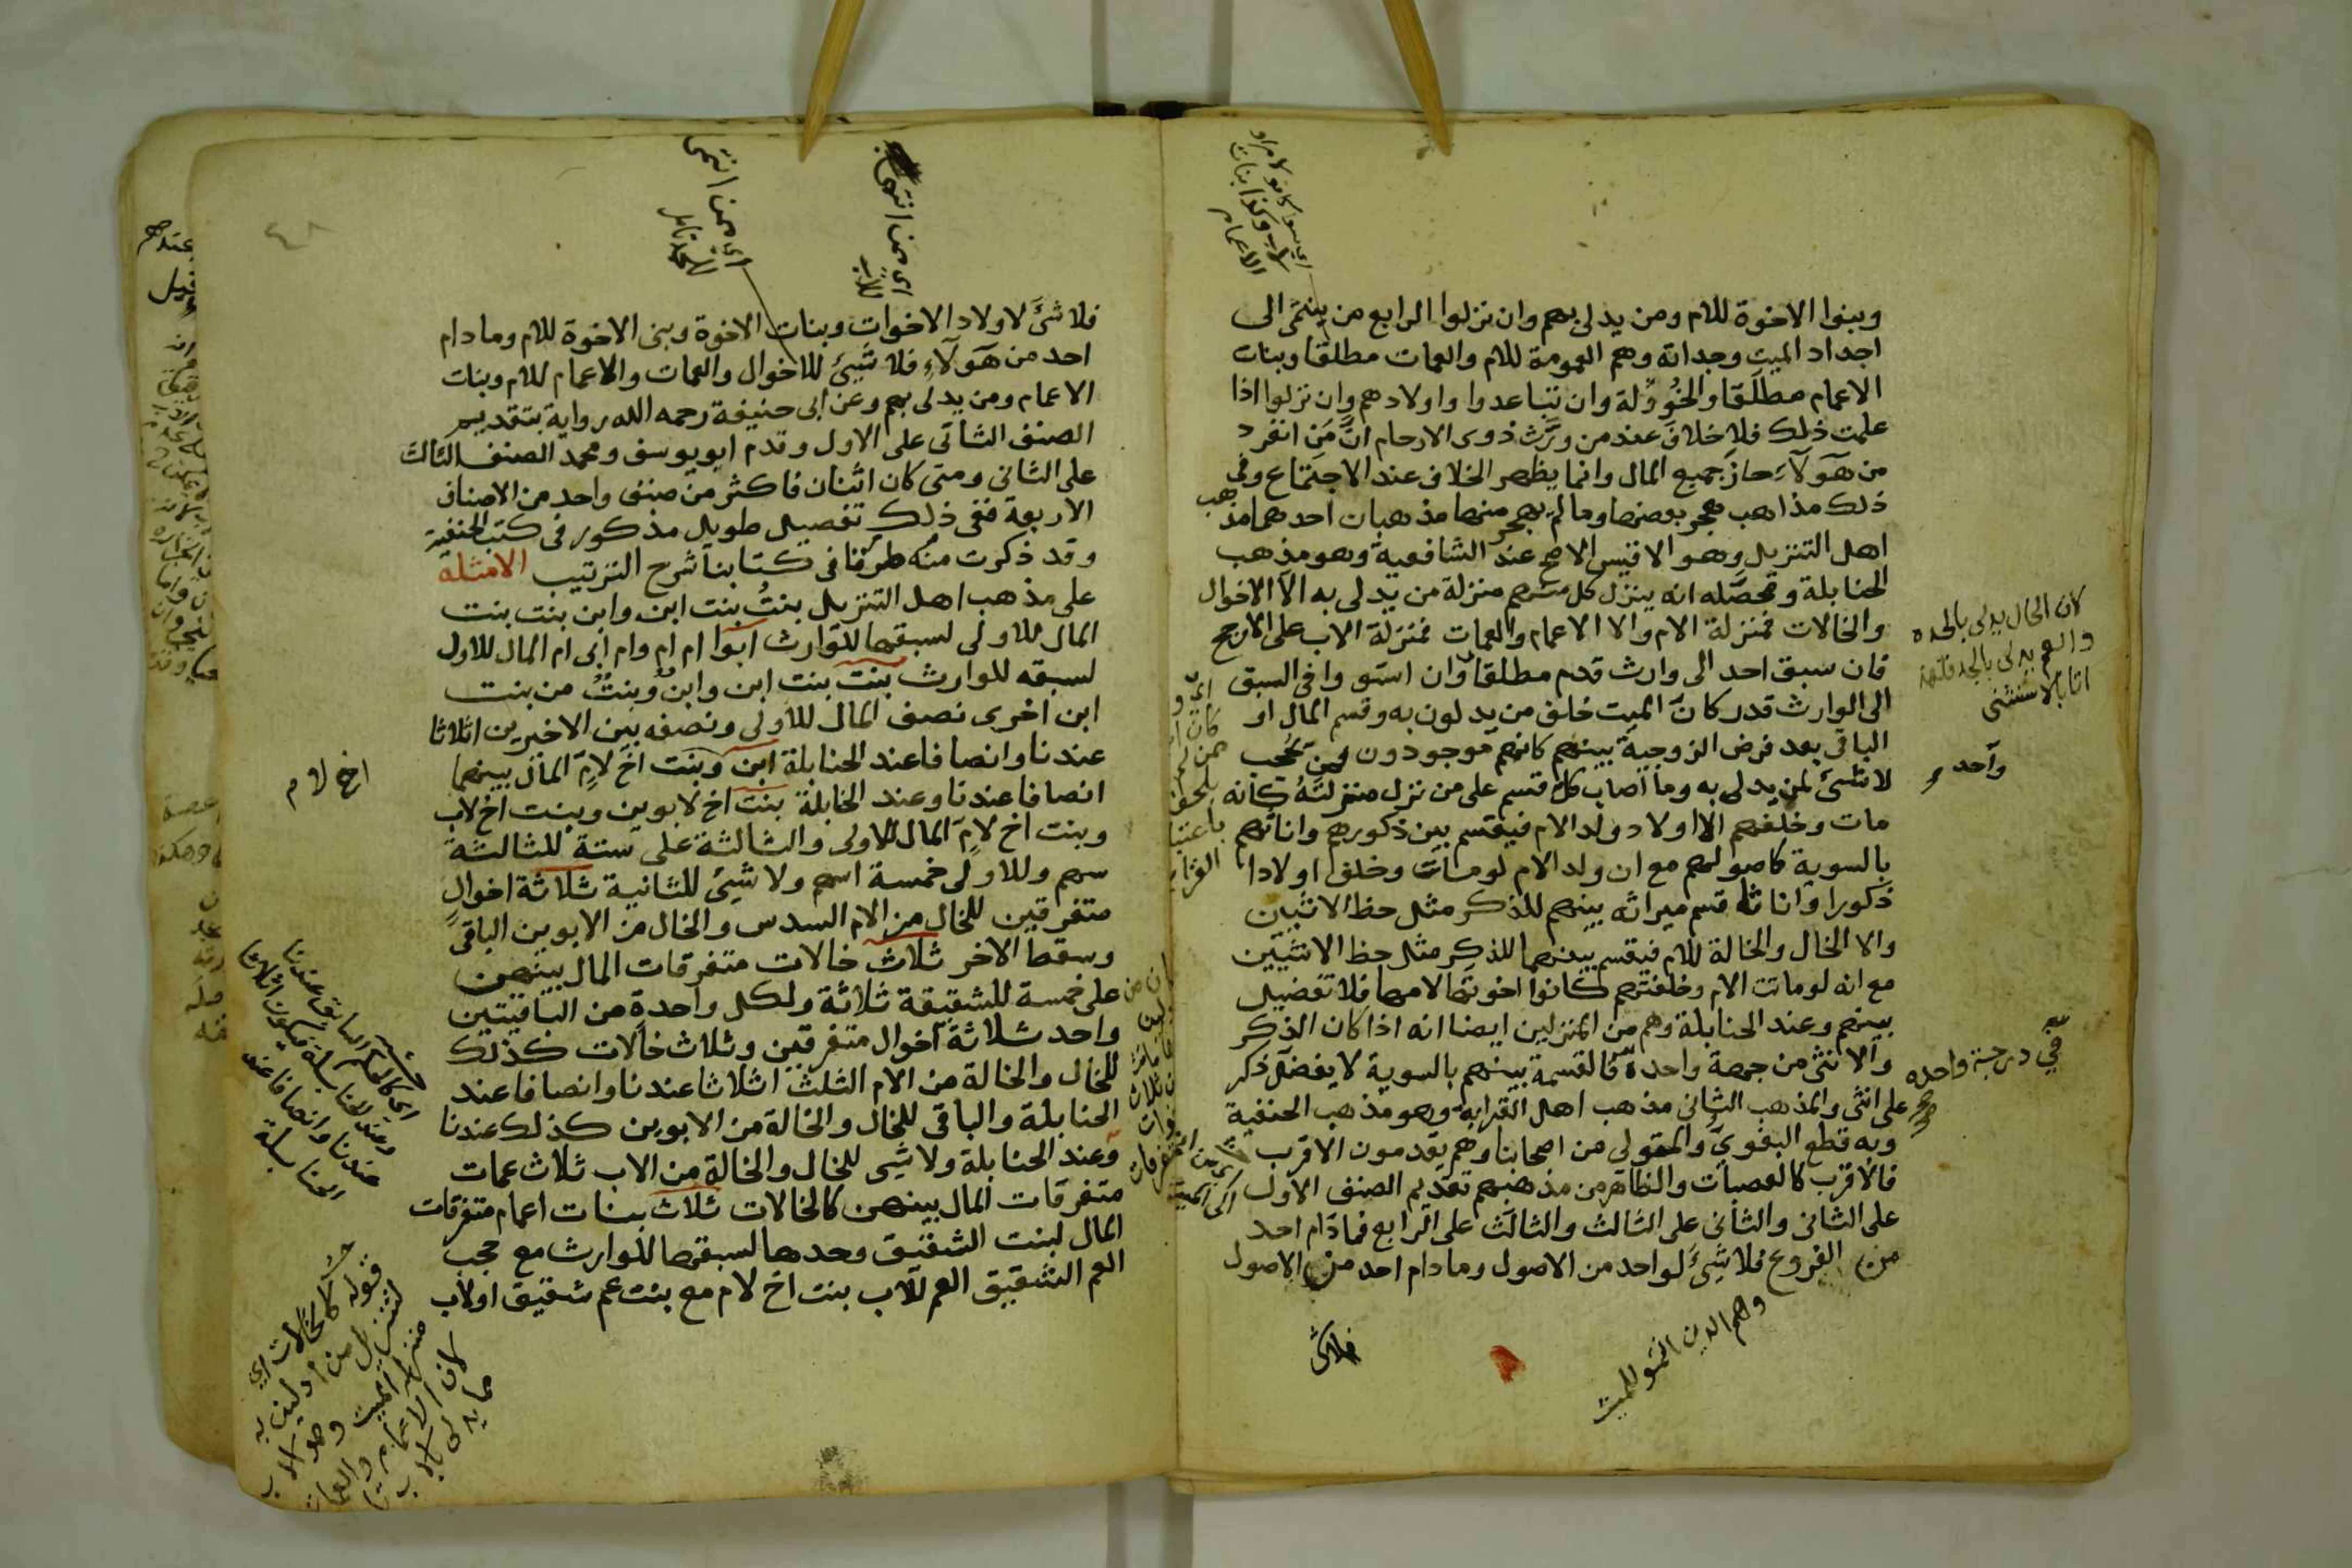 وبنوا الاخوة للام ومن يدلى بهم وان نزلوا الرابع من ينتمى الى
اجداد الميت وجداته وهم العمومة للام والعمات مطلقا وبنات
الاعمام مطلقا والخؤولة وان تباعدوا واولادهم وان نزلوا اذا
علمت ذلك فلا خلاف عند من ورّث ذوى الارحام انّ من انفرد
من هؤلاء حاز جميع المال وانما يظهر الخلاف عند الاجتماع وفى
ذلك مذاهب هجر بعضها وما لم يهجر منها مذهبان احدهما مذهب
اهل التنزيل وهو الاقيس الاصح عند الشافعية وهو مذهب
الحنابلة ومحصّله انه ينزل كل منهم منزلة من يدلى به الا الاخوال
والخالات فمنزلة الام والا الاعمام والعمات فمنزلة الاب على الارجح
فان سبق احد الى وارث قدم مطلقا وان استووا فى السبق
الى الوارث قدر كانّ الميت خلف من يدلون به وقسم المال او
الباقى بعد فرض الزوجية بينهم كانهم موجودون فمن يحجب
لا شئ لمن يدلى به وما اصاب كل قسم على من نزل منزلته كانه
مات وخلفهم الا اولاد ولد الام فيقسم بين ذكورهم واناثهم
بالسوية كاصولهم مع ان ولد الام لو مات وخلف اولادا
ذكورا واناثا قسم ميراثه بينهم للذكر مثل حظ الانثيين
والا الخال والخالة للام فيقسم بينهما للذكر مثل حظ الانثيين
مع انه لو ماتت الام وخلفتهم كانوا اخوتها لامها فلا تفضيل
بينهم وعند الحنابلة وهم من المنزلين ايضا انه اذا كان الذكر
والانثى من جهة واحدة فالقسمة بينهم بالسوية لا يفضل ذكر
على انثى والمذهب الثانى مذهب اهل القرابة وهو مذهب الحنفية
وبه قطع البغوي والمتولى من اصحابنا وهم يقدمون الاقرب
فالاقرب كالعصبات والظاهر من مذهبهم تقديم الصنف الاول
على الثانى والثانى على الثالث والثالث على الرابع فما دام احد
من الفروع فلا شئ لواحد من الاصول وما دام احد من الاصول
فلا شئ
وهم الذين انتموا للميت
لان الخال يدلى بالجده
والعم يدلى بالجد
واحد
في درجة واحده
فلا شئ لاولاد الاخوات وبنات الاخوة وبنى الاخوة للام وما دام
احد من هؤلاء فلا شئ للاخوال والعمات والاعمام للام وبنات
الاعمام ومن يدلى بهم وعن ابى حنيفة رحمه الله رواية بتقديم
الصنف الثانى على الاول وقدم ابو يوسف ومحمد الصنف الثالث
على الثانى ومتى كان اثنان فاكثر من صنف واحد من الاصناف
الاربعة ففى ذلك تفصيل طويل مذكور فى كتب الحنفية
وقد ذكرت منه طرفا فى كتابنا شرح الترتيب الامثلة
على مذهب اهل التنزيل بنت بنت ابن وابن بنت بنت
المال للاولى لسبقها للوارث ابوا ام ام وام ابى ام المال للاول
لسبقه للوارث بنت بنت ابن وابن وبنت من بنت
ابن اخرى نصف المال للاولى ونصفه بين الاخيرين اثلاثا
عندنا وانصافا عند الحنابلة ابن وبنت اخ لام المال بينهما
انصافا عندنا وعند الحنابلة بنت اخ لابوين وبنت اخ لاب
وبنت اخ لام المال للاولى والثالثة على ستة للثالثة
سهم وللاولى خمسة اسهم ولا شئ للثانية ثلاثة اخوال
متفرقين للخال من الام السدس والخال من الابوين الباقى
وسقط الاخر ثلاث خالات متفرقات المال بينهن
على خمسة للشقيقة ثلاثة ولكل واحدة من الباقيتين
واحد ثلاثة اخوال متفرقين وثلاث خالات كذلك
للخال والخالة من الام الثلث اثلاثا عندنا وانصافا عند
الحنابلة والباقى للخال والخالة من الابوين كذلك عندنا
وعند الحنابلة ولا شئ للخال والخالة من الاب ثلاث عمات
متفرقات المال بينهن كالخالات ثلاث بنات اعمام متفرقات
المال لبنت الشقيق وحدها لسبقها للوارث مع حجب
العم الشقيق العم للاب بنت اخ لام مع بنت عم شقيق او لاب
اخ لام